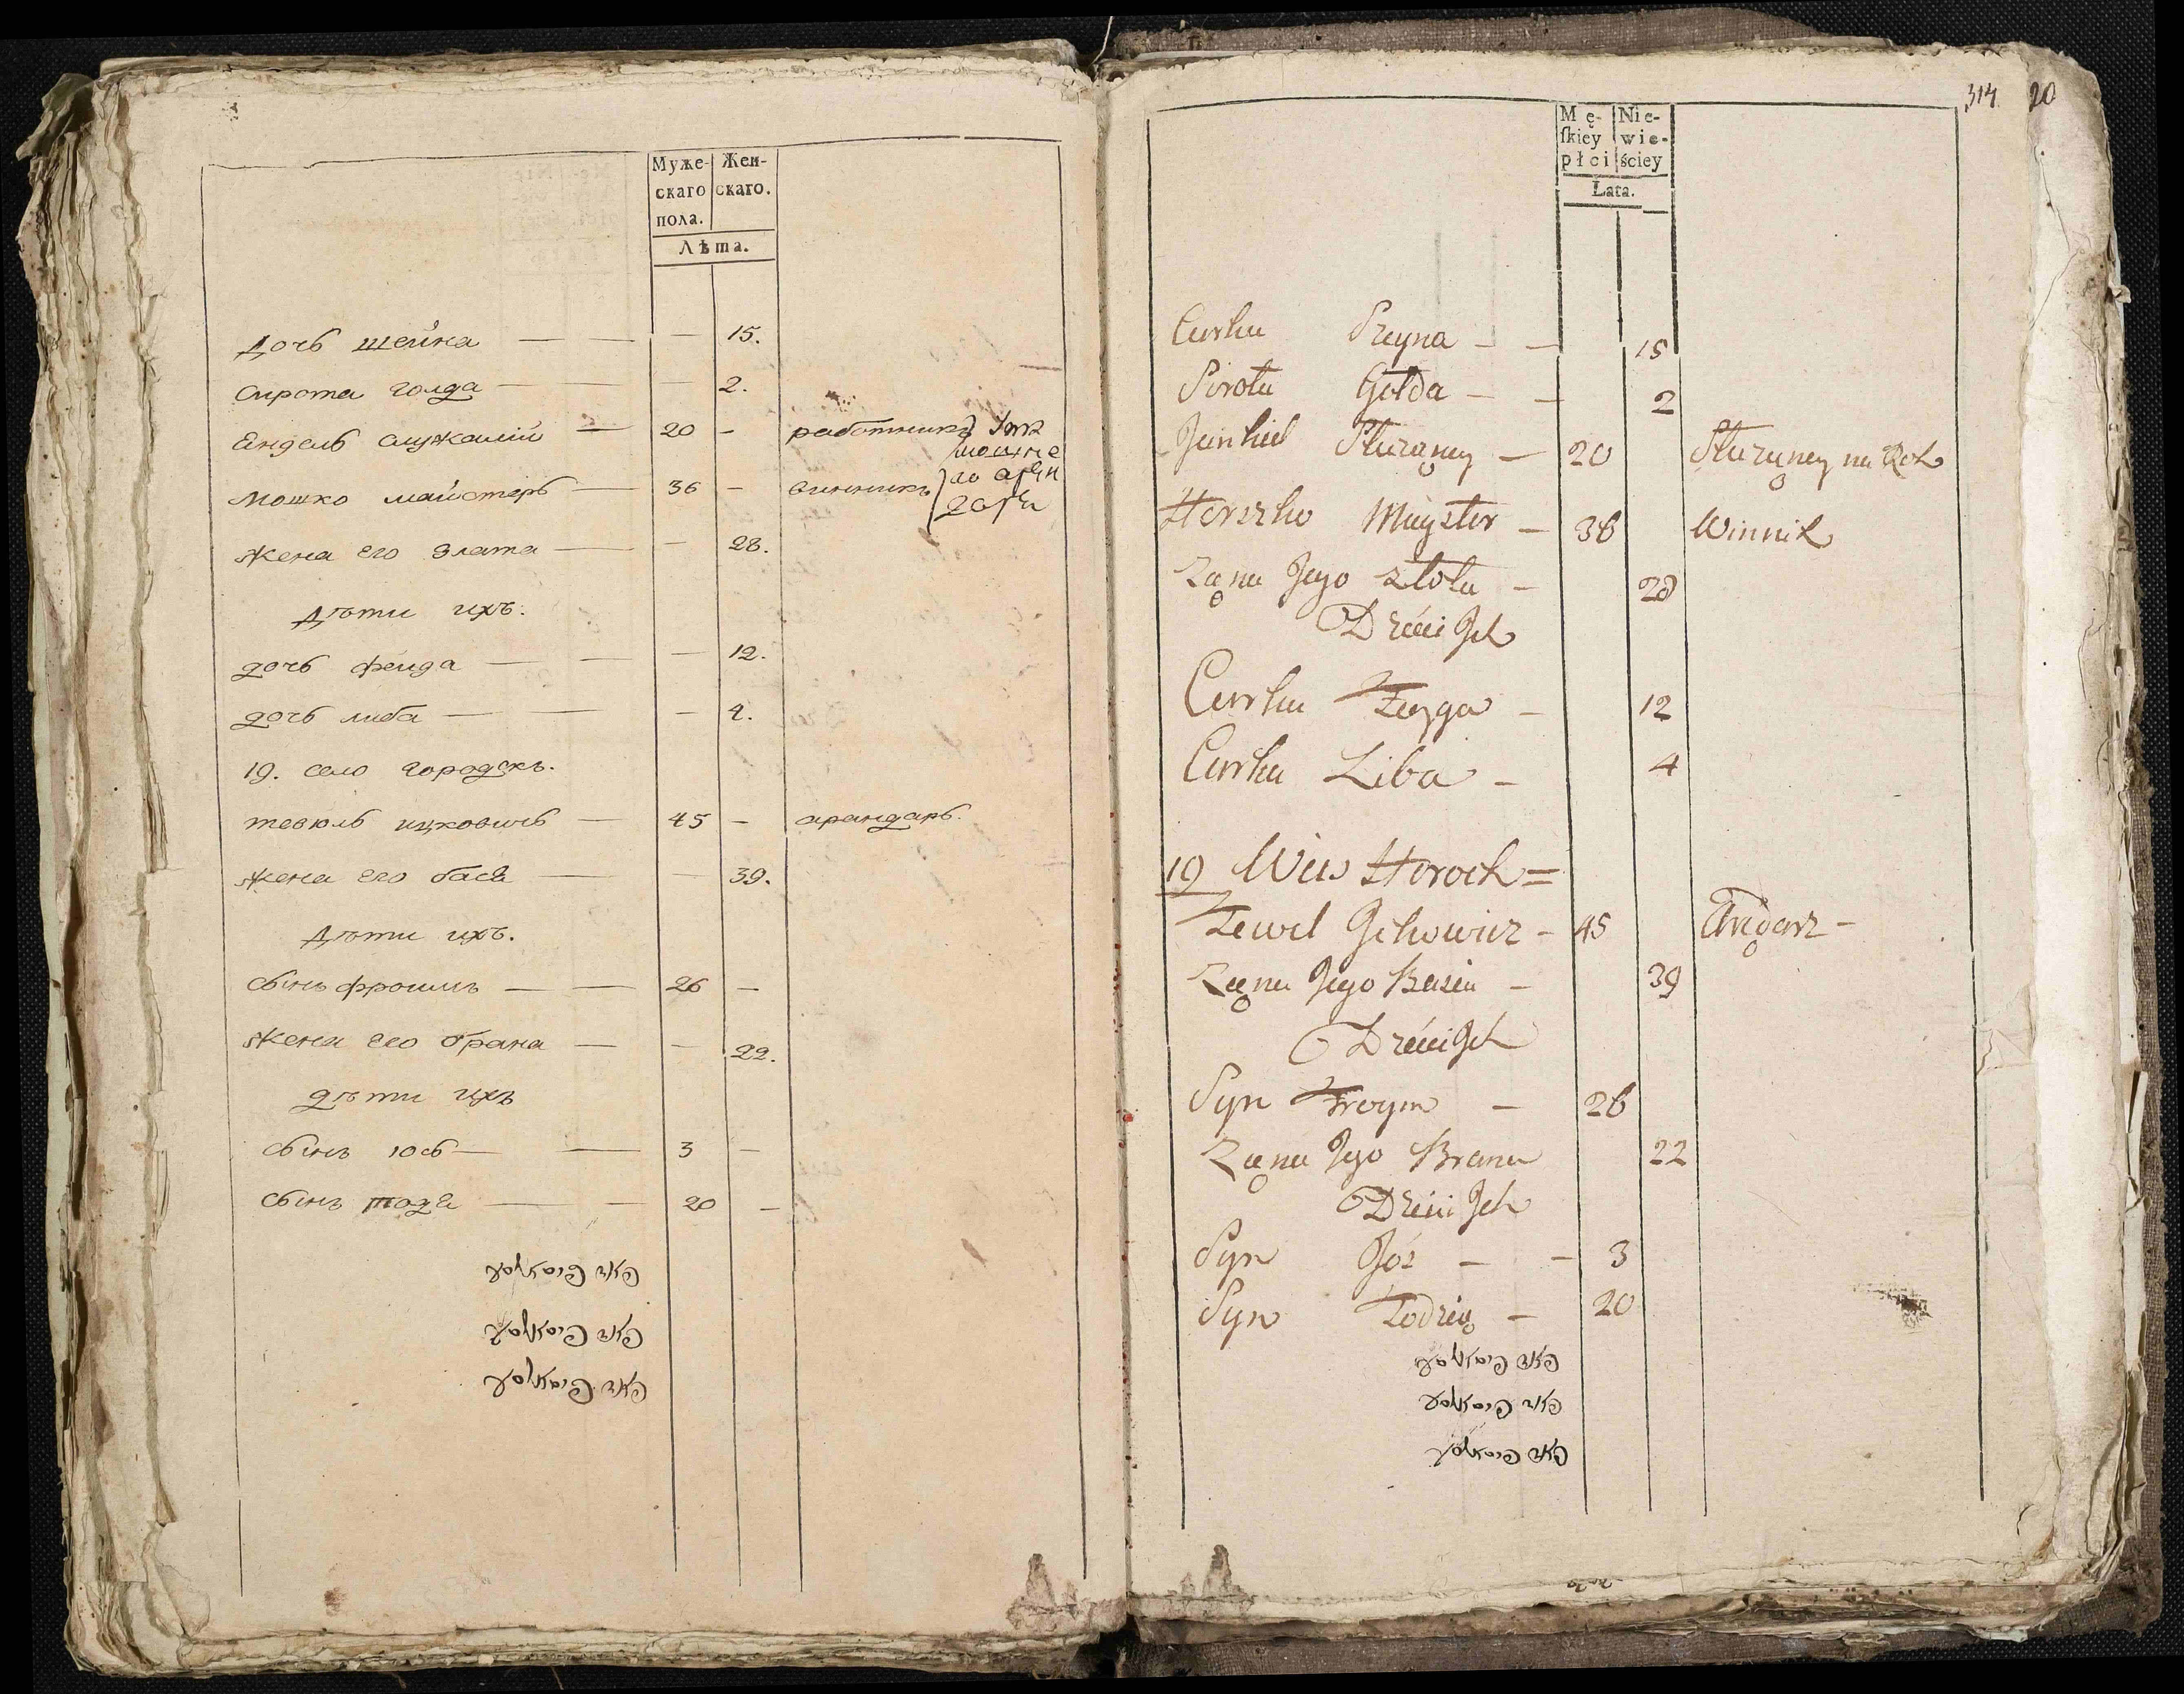 Муже- Жен-
скаго скаго.
пола.
Лѣта.
дочь шейна — — — 15.
сирота голда — — — 2.
Ендель служалій — 20 — работникъ
мошко майстеръ — 36 — винникъ
жена его злата — — 28.
дѣти ихъ.
дочь фейга — — — 12.
дочь либа — — — 4.
19. село городскъ.
тевюль ицковичь — 45 — арандарь.
жена его бася — — 39.
дѣти ихъ.
сынъ фроимъ — — 26 —
жена его брана — — 22.
дѣти ихъ
сынъ юсь — — 3 —
сынъ тодя — — 20 —
314 20
Mę- Nie-
ſkiey wie-
płci ściey
Lata.
Curka Szeyna — — 15
Sirota Gołda — — 2
Jankiel Służąney — 20 Służąney na Rok
Herszko Mayster — 36 Winnik
Żąna Jego Złota — 28
Dzieci Jch
Curka Feyga — 12
Curka Liba — 4
19 Wieś Horock =
Tewel Jckowicz — 45 Arędarz —
Żąna Jego Basia — 39
Dzieci Jch
Syn Froym — 26
Żąna Jego Brana 22
Dzieci Jch
Syn Jós — — 3
Syn Todzią — 20